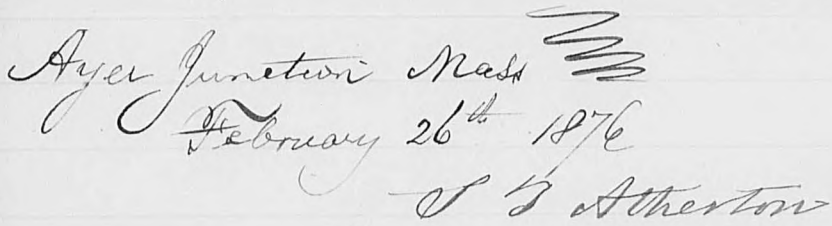 Ayer Junction Mass
February 26th 1876
S F Atherton